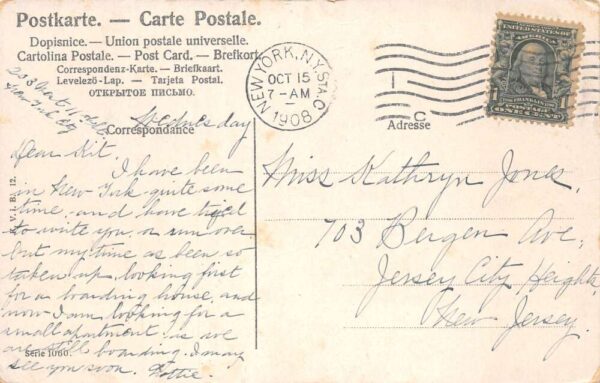 Postkarte. — Carte Postale.
Dopisnice. — Union postale universelle.
Cartolina Postale. — Post Card. — Brefkort
Correspondenz-Karte. — Briefkaart.
Levelező-Lap. — Tarjeta Postal.
ОТКРЫТОЕ ПИСЬМО.
Correspondance
Adresse
NEW YORK, N.Y. STA. C
OCT 15
7-AM
1908
C
FRANKLIN
1
233 West
New York City
Wednesday
Dear Kit,
I have been
in New York quite some
time, and have tried
to write you, or run over
but my time as been so
taken up, looking first
for a boarding house, and
now I am looking for a
small apartment as we
are still boarding. I may
see you soon. Lottie.
Miss Kathryn Jones,
703 Bergen Ave,
Jersey City Heights,
New Jersey.
Serie 1060.